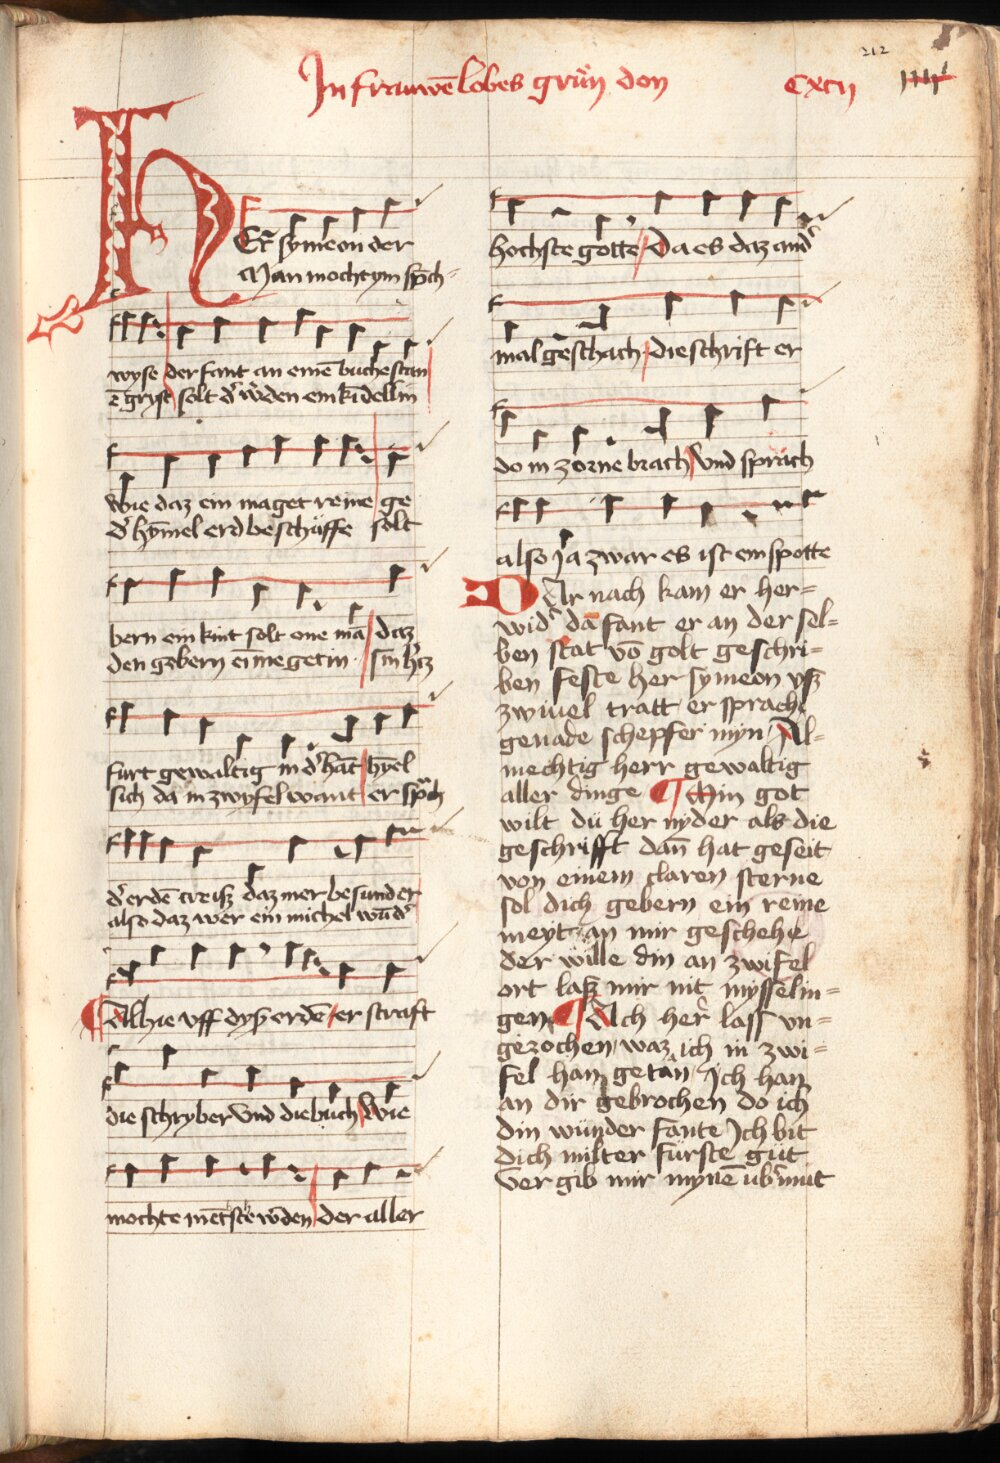 212
In frauwē lobes grün don
cxcij
HEr symeon der
Man mocht ym sp̄ch=
wyse der fant an eine buche stan
ē gryse solt d' w'den ein kīdellin
wie daz ein maget reine ge
d' hȳmel erd beschäffe solt
bern ein kint solt one mā daz
den gebern ein megetin sin h'tz
furt gewaltig in d' hāt hymel
sich da in zwyfel want er sp̄ch
d' erdē creisz daz mer besunder
also daz wer ein michel wūd'
Alhie uff dysz erdē er straft
die schryber vnd die buch wie
mochte mētste w'den der aller
hochste gotte Da es daz and'
mal geschach die schrift er
do in zorne brach vnd sprach
also ja zwar es ist ein spotte
DAr nach kam er her=
wid' da fant er an der sel=
ben stat vō golt geschri=
ben feste her symeon vsz
zwiuel tratt er sprach
genade schepfer myn Al=
mechtig herr gewaltig
aller dinge Min got
wilt dü her nyder als die
geschrifft dan̄ hat geseit
von einem claren sterne
sol dich gebern ein reine
meyt an mir geschehe
der wille din an zwifel
ort lasz mir nit mysselin=
gen Ach her lass vn=
gerochen waz ich in zwi=
fel han getan Ich han
an dir gebrochen do ich
din wunder fante Ich bit
dich milter furste güt
Vergib mir mynē ub'müt